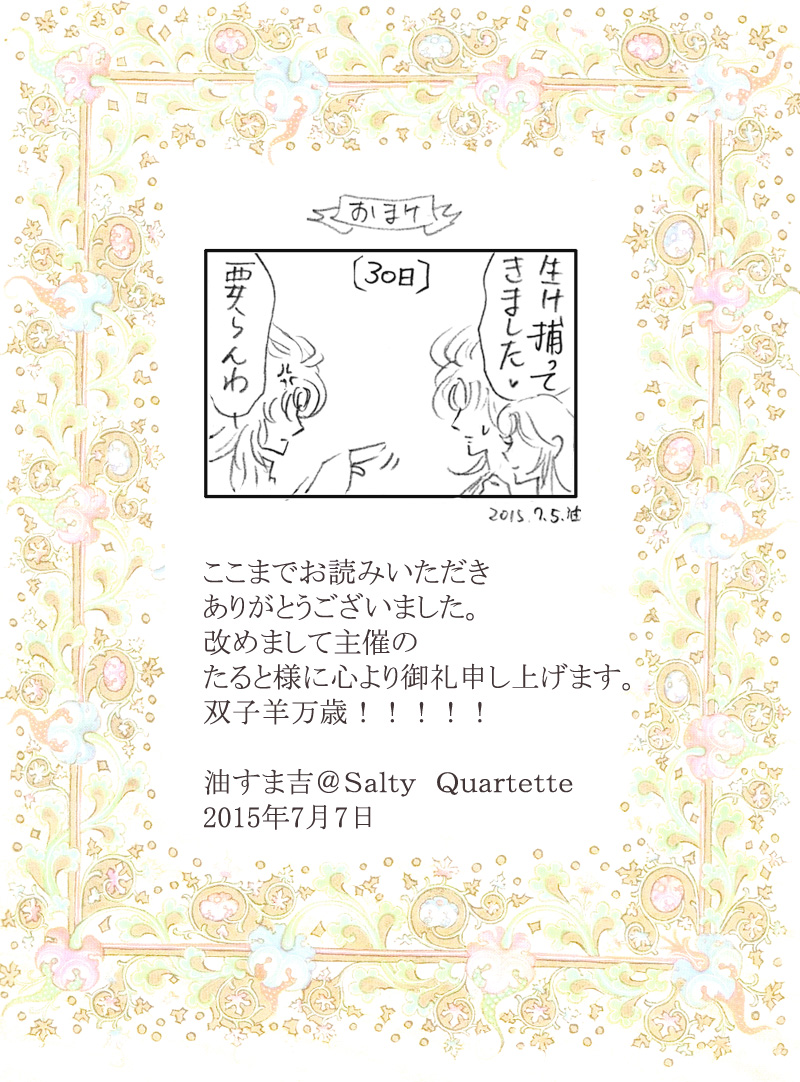 おまけ
〔30日〕
生け捕って
きました♥
要らんわー
2015.7.5.油
ここまでお読みいただき
ありがとうございました。
改めまして主催の
たると様に心より御礼申し上げます。
双子羊万歳！！！！！
油すま吉＠Salty　Quartette
2015年7月7日